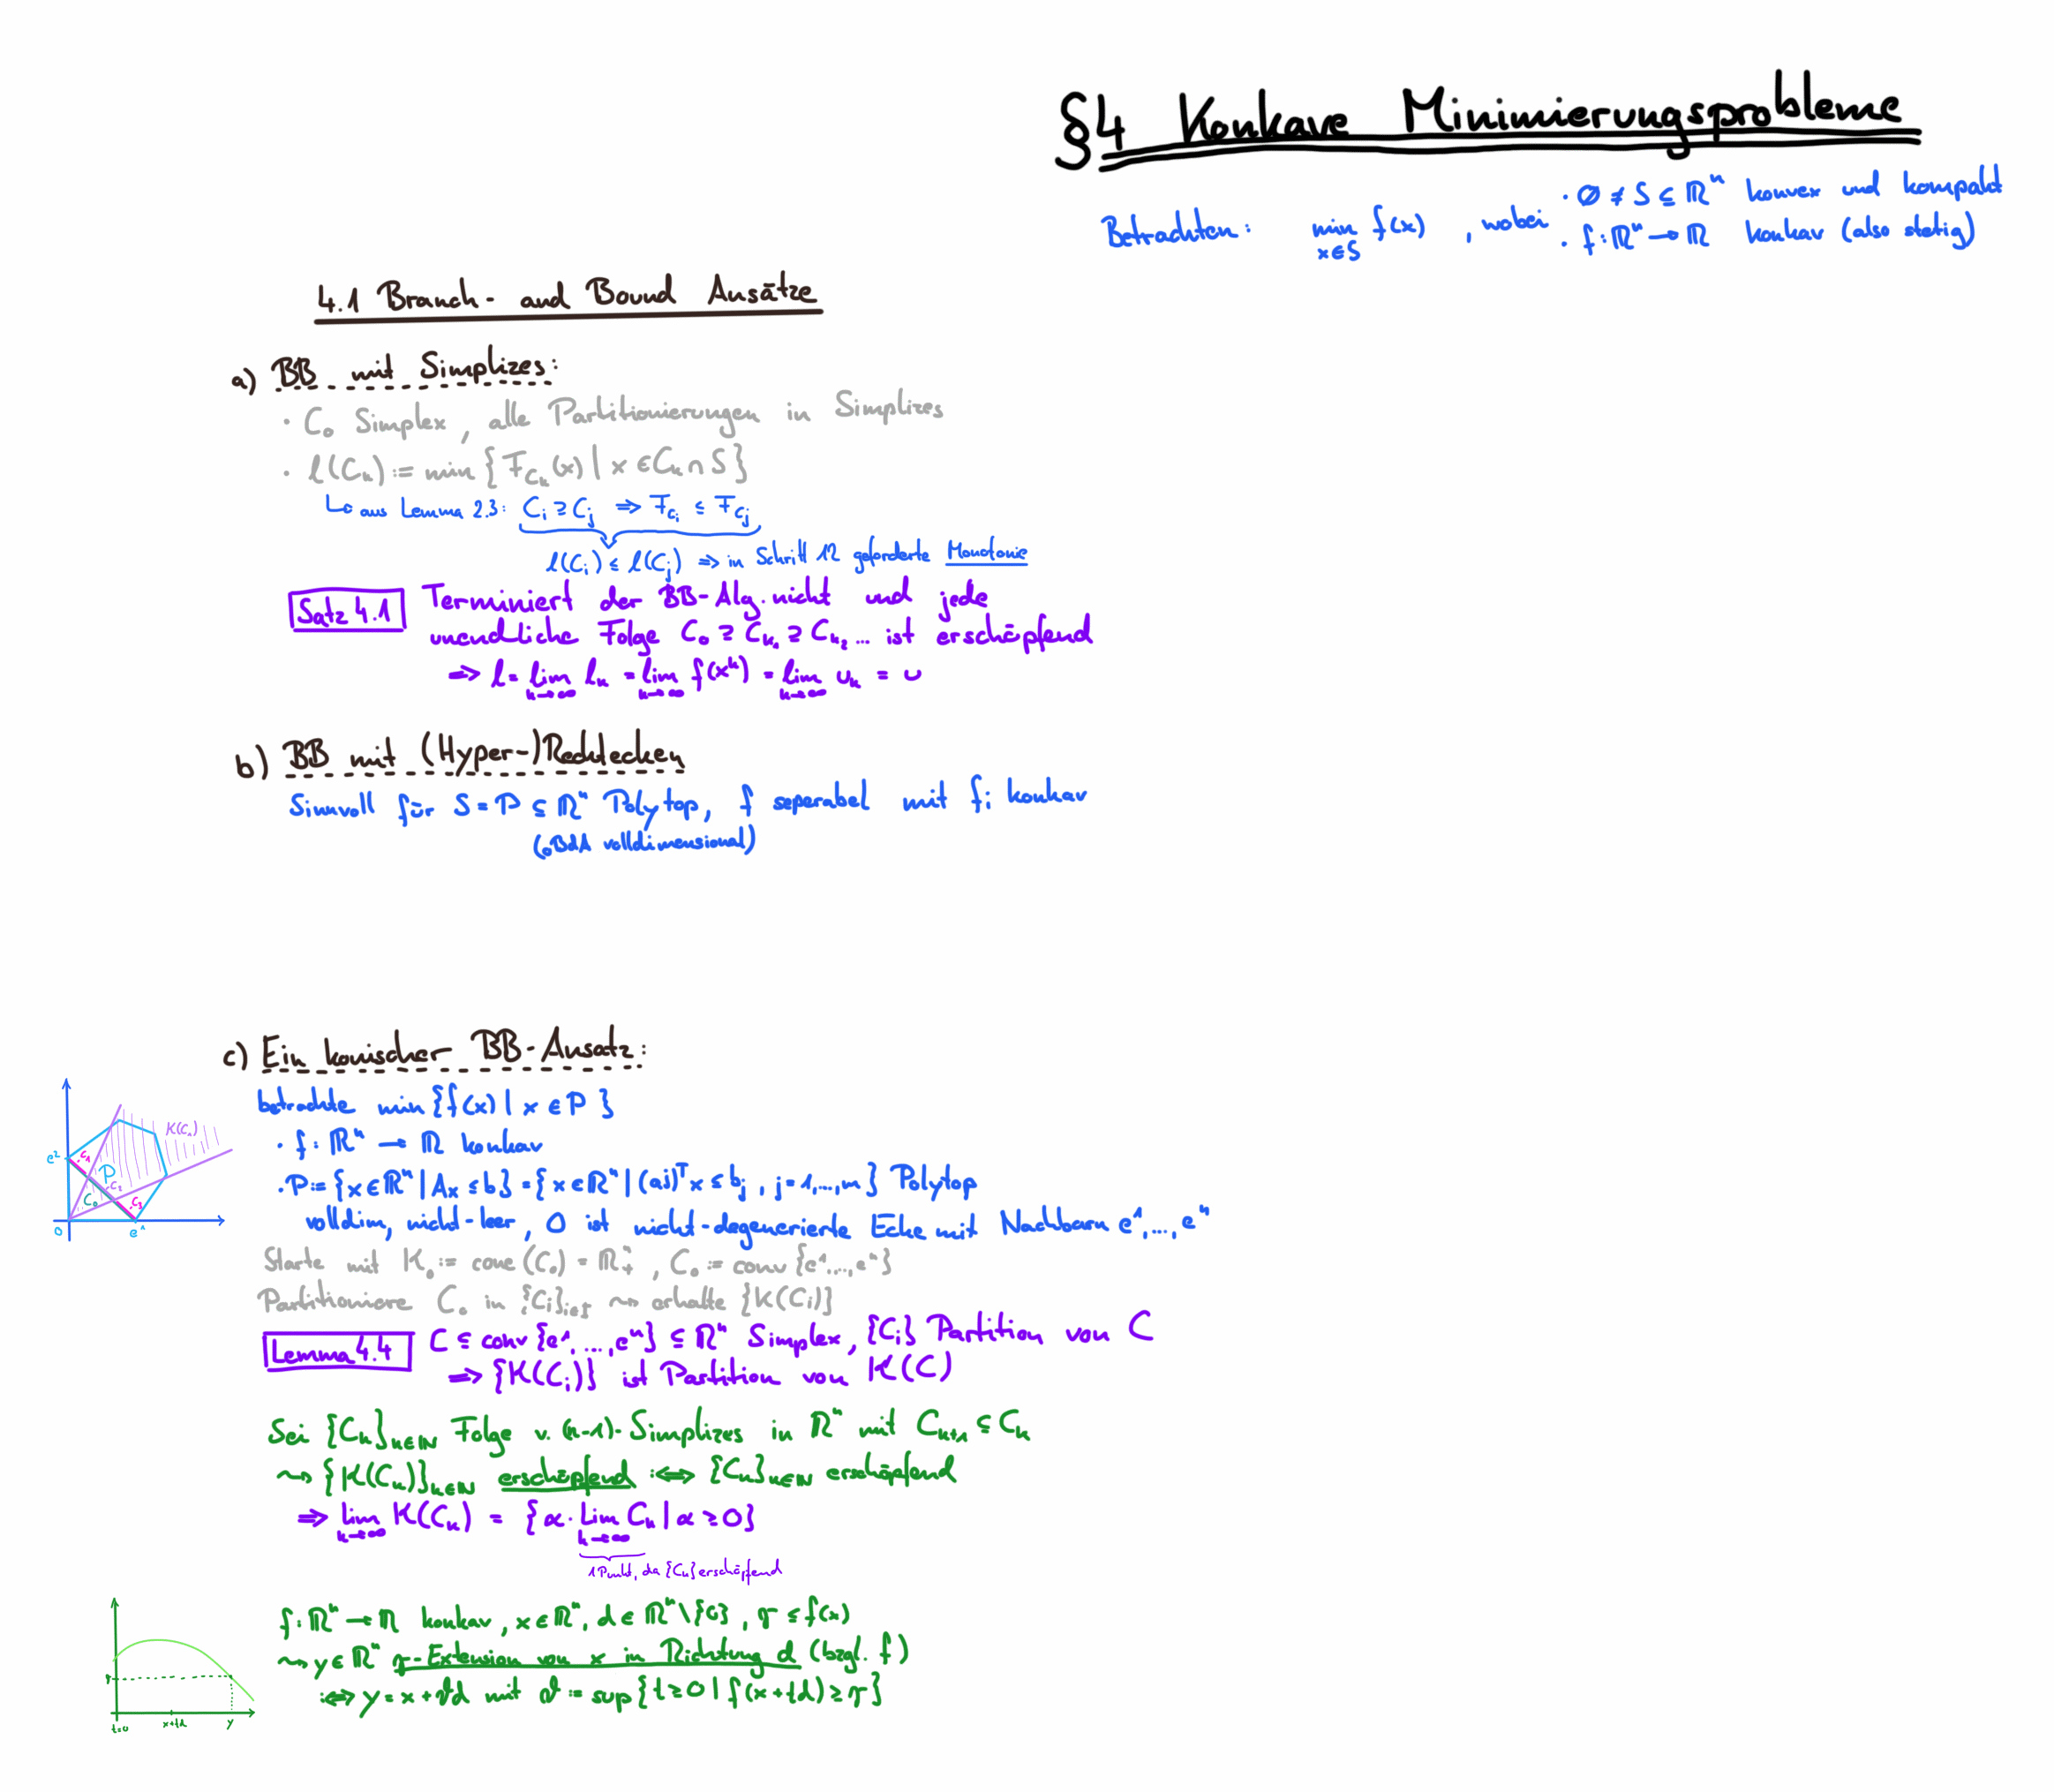 §4 Konkave Minimierungsprobleme
Betrachten: min f(x) , wobei · ∅ ≠ S ⊆ ℝⁿ konvex und kompakt
x∈S · f: ℝⁿ → ℝ konkav (also stetig)
4.1 Branch- and Bound Ansätze
a) BB mit Simplizes:
· C₀ Simplex, alle Partitionierungen in Simplizes
· l(Cₖ) := min { F_Cₖ(x) | x ∈ Cₖ ∩ S }
↳ aus Lemma 2.3: Cᵢ ⊇ Cⱼ ⇒ F_Cᵢ ≤ F_Cⱼ
l(Cᵢ) ≤ l(Cⱼ) ⇒ in Schritt 12 geforderte Monotonie
Satz 4.1 Terminiert der BB-Alg. nicht und jede
unendliche Folge C₀ ⊇ C_k₁ ⊇ C_k₂ ... ist erschöpfend
⇒ l = lim lₖ = lim f(xᵏ) = lim uₖ = u
k→∞ k→∞ k→∞
b) BB mit (Hyper-)Rechtecken
Sinnvoll für S = P ⊆ ℝⁿ Polytop, f seperabel mit fᵢ konkav
(oBdA volldimensional)
c) Ein konischer BB-Ansatz:
betrachte min { f(x) | x ∈ P }
· f: ℝⁿ → ℝ konkav
· P := {x ∈ ℝⁿ | Ax ≤ b} = {x ∈ ℝⁿ | (aj)ᵀ x ≤ bⱼ , j = 1,...,m } Polytop
volldim, nicht-leer, 0 ist nicht-degenerierte Ecke mit Nachbarn e¹,...,eⁿ
K(C₂)
e²
C₁
P
C₂
C₀
C₃
0
e¹
Starte mit K₀ := cone(C₀) = ℝⁿ₊ , C₀ := conv {e¹,...,eⁿ}
Partitioniere C₀ in {Cᵢ}ᵢ∈I ⇝ erhalte {K(Cᵢ)}
Lemma 4.4 C ⊆ conv {e¹,...,eⁿ} ⊆ ℝⁿ Simplex, {Cᵢ} Partition von C
⇒ {K(Cᵢ)} ist Partition von K(C)
Sei {Cₖ}ₖ∈ℕ Folge v. (n-1)-Simplizes in ℝⁿ mit Cₖ₊₁ ⊆ Cₖ
⇝ {K(Cₖ)}ₖ∈ℕ erschöpfend :⟺ {Cₖ}ₖ∈ℕ erschöpfend
⇒ lim K(Cₖ) = {α · lim Cₖ | α ≥ 0}
k→∞ k→∞
1 Punkt, da {Cₖ} erschöpfend
f: ℝⁿ → ℝ konkav, x ∈ ℝⁿ, d ∈ ℝⁿ\{0}, γ ≤ f(x)
⇝ y ∈ ℝⁿ γ-Extension von x in Richtung d (bzgl. f)
:⟺ y = x + ϑd mit ϑ := sup {t ≥ 0 | f(x+td) ≥ γ}
γ
t=0
x+td
y